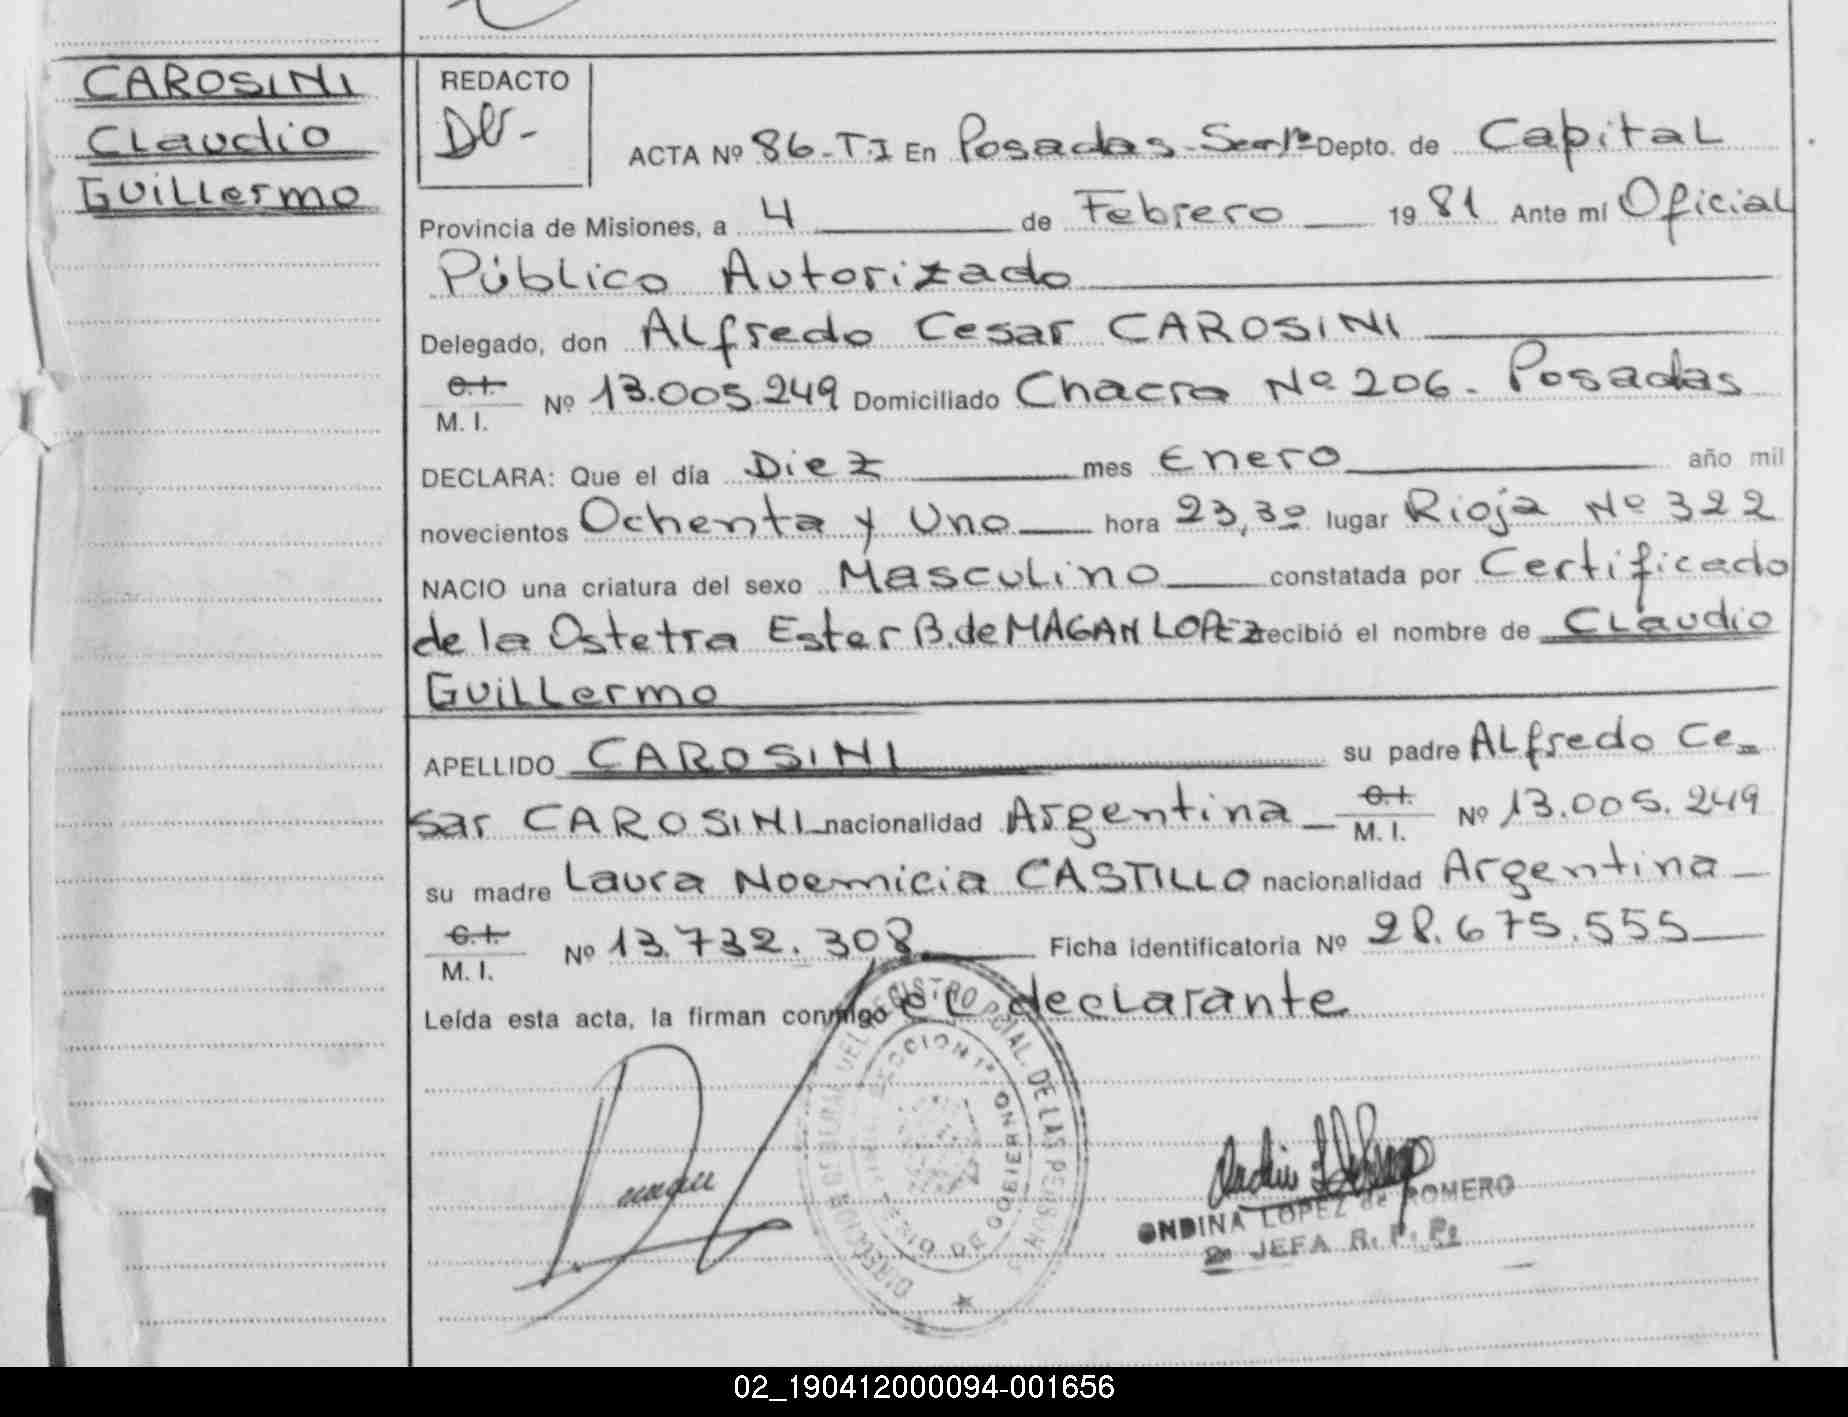 CAROSINI
Claudio
Guillermo
REDACTO
ACTA Nº 86-T.I En Posadas-Secc/1ª Depto. de Capital
Provincia de Misiones, a 4 de Febrero 1981 Ante mí Oficial
Público Autorizado
Delegado, don Alfredo Cesar CAROSINI
C.I.
M. I. Nº 13.005.249 Domiciliado Chacra Nº 206. Posadas
DECLARA: Que el día Diez mes Enero año mil
novecientos Ochenta y Uno hora 23,30 lugar Rioja Nº 322
NACIO una criatura del sexo Masculino constatada por Certificado
de la Ostetra Ester B. de MAGAN LOPEZ recibió el nombre de Claudio
Guillermo
APELLIDO CAROSINI su padre Alfredo Ce=
sar CAROSINI nacionalidad Argentina C.I. M. I. Nº 13.005.249
su madre Laura Noemicia CASTILLO nacionalidad Argentina
C.I.
M. I. Nº 13.732.308 Ficha identificatoria Nº 28.675.555
Leída esta acta, la firman conmigo el declarante
REGISTRO PCIAL. DE LAS PERSONAS
SECCION 1ª
DE GOBIERNO
ONDINA LOPEZ de ROMERO
JEFA R. P. P.
02_190412000094-001656